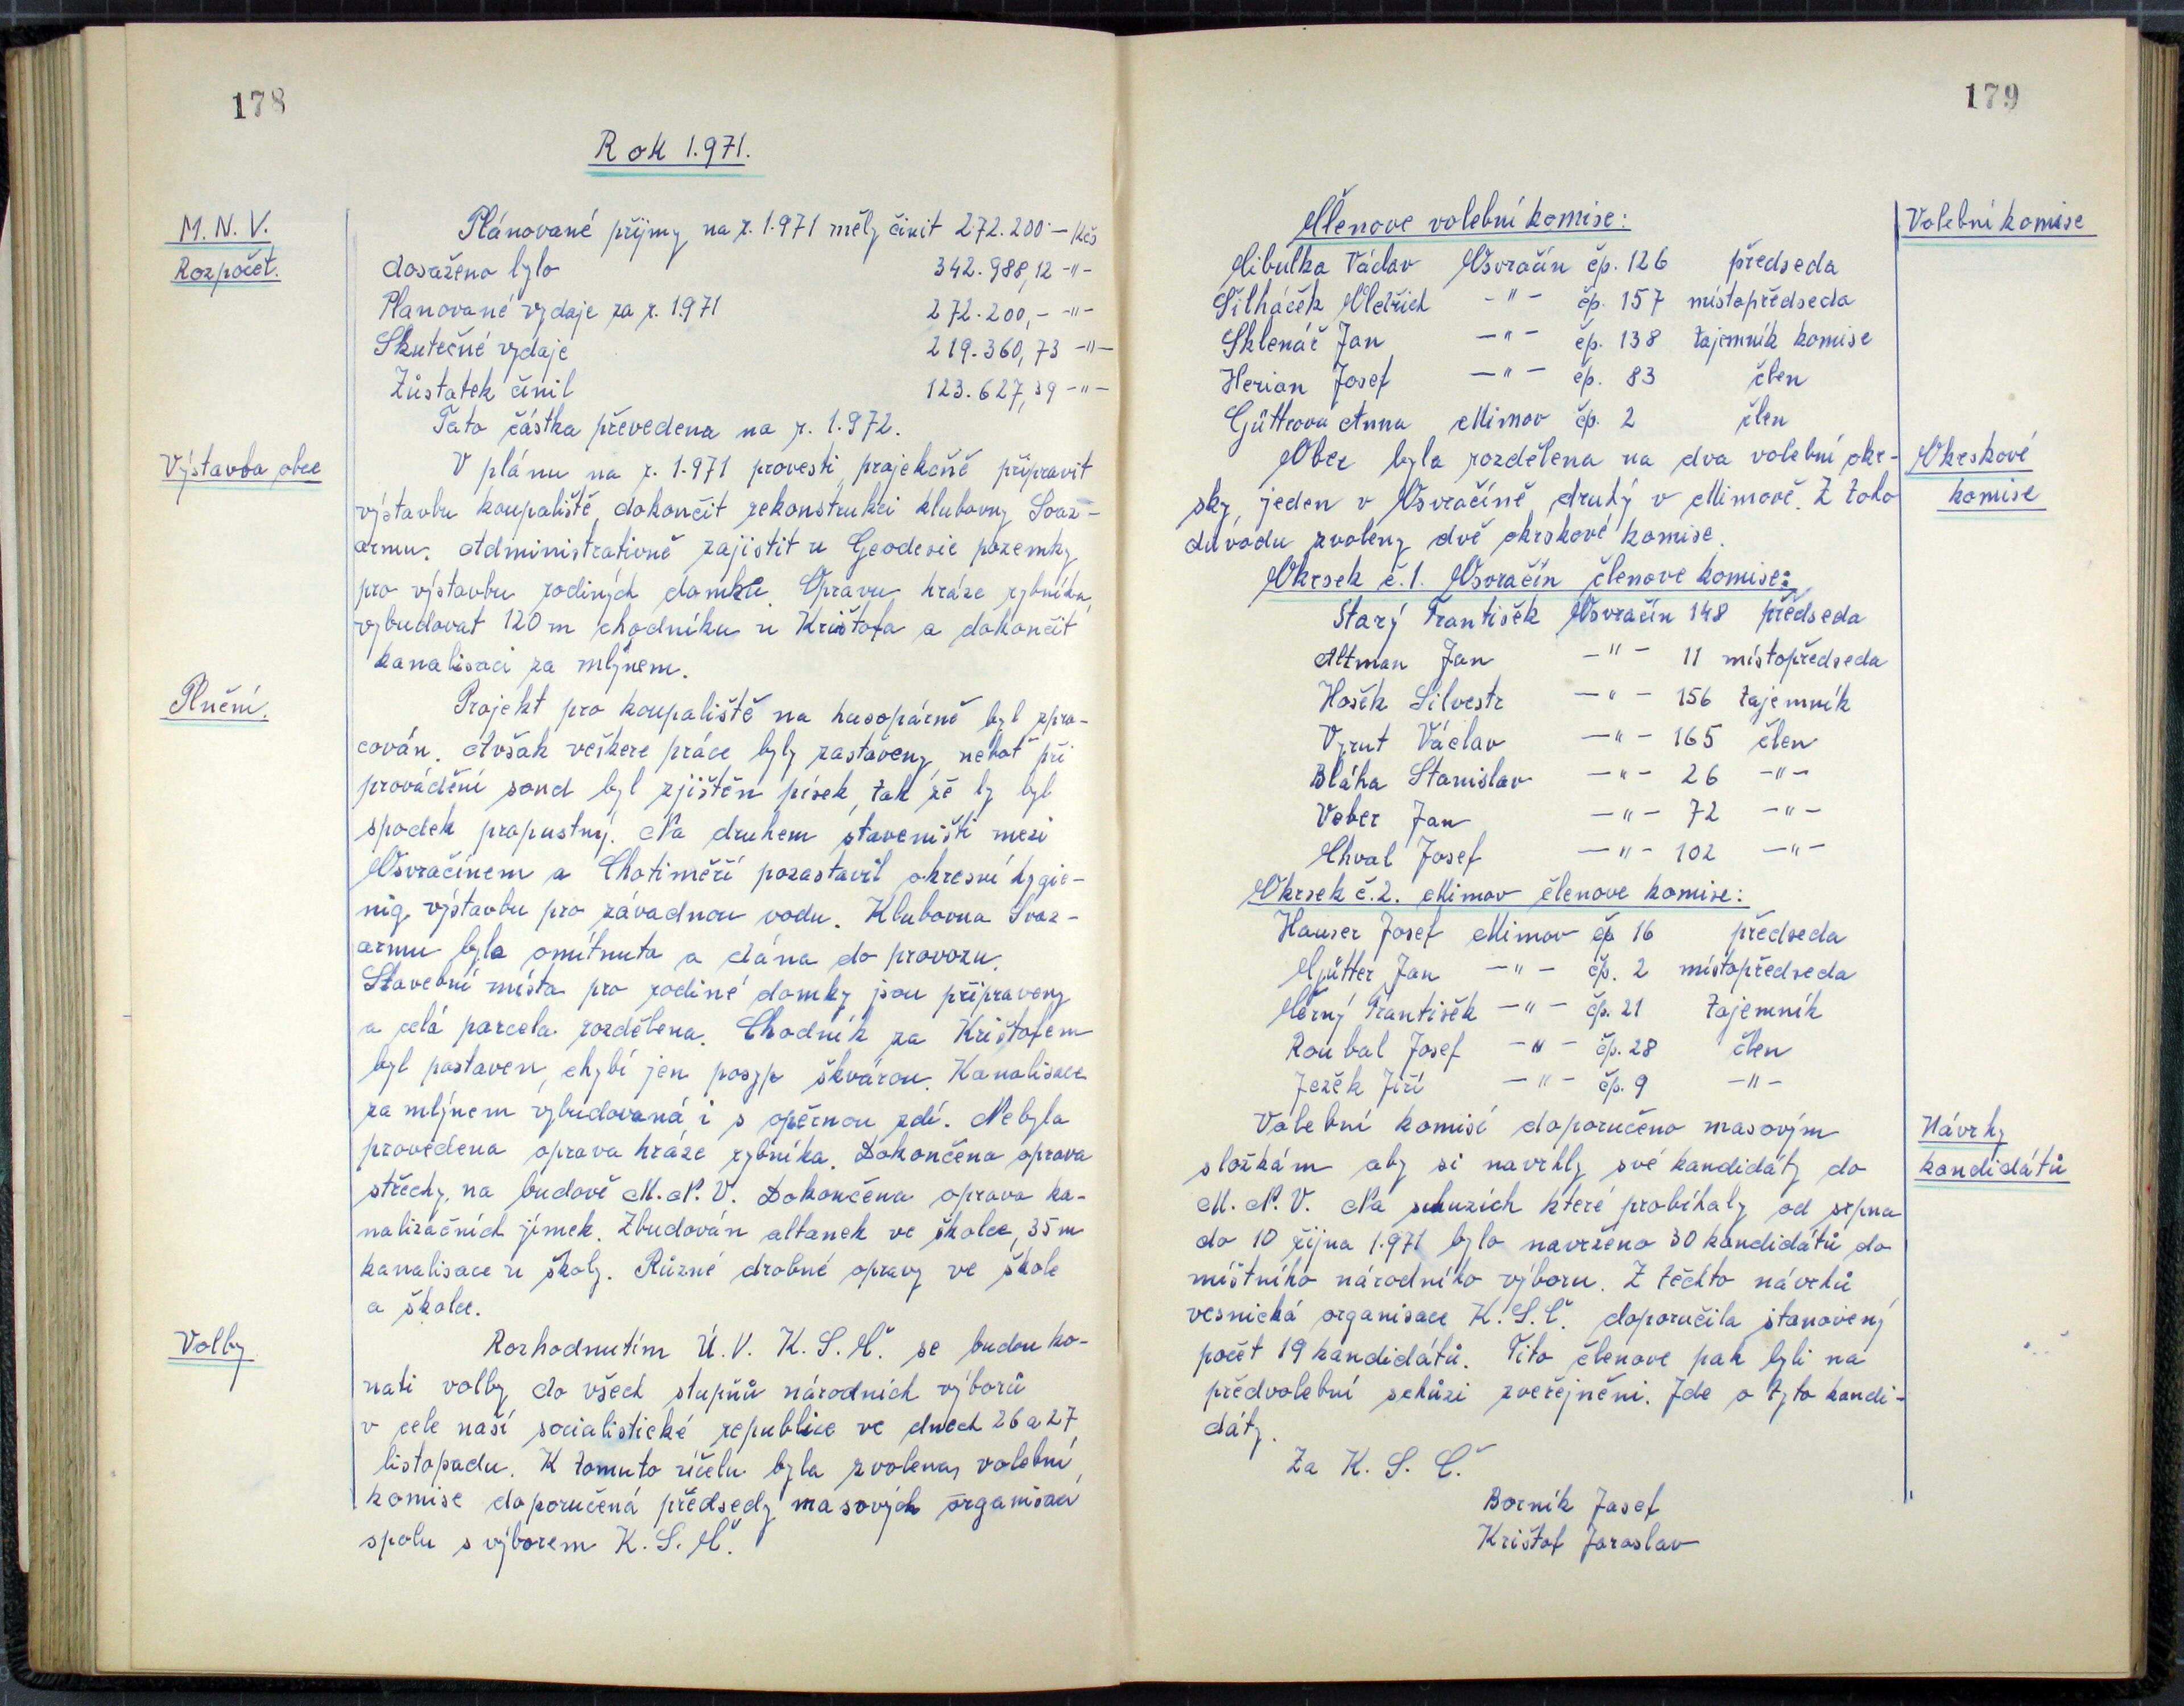 178
Rok 1.971.
M. N. V.
Rozpočet.
Plánované příjmy na r. 1.971 měly činit 272.200·— Kčs
dosaženo bylo 342.988,12 -"-
Planované výdaje za r. 1971 272.200,- -"-
Skutečné výdaje 219.360,73 -"-
Zůstatek činil 123.627,39 -"-
Tato částka převedena na r. 1.972.
Výstavba obce
V plánu na r. 1.971 provesti, projekčně připravit
výstavbu koupaliště, dokončit rekonstrukci klubovny Svaz-
armu. Administrativně zajistit u Geodesie pozemky
pro výstavbu rodiných domku. Opravu hráze rybníka,
vybudovat 120 m chodníku u Krištofa a dokončit
kanalisaci za mlýnem.
Plnění.
Projekt pro koupaliště na husopárně byl zpra-
cován. Avšak veškere práce byly zastaveny, neboť při
provádění sond byl zjištěn písek, tak že by byl
spodek propustný. Na druhem staveništi mezi
Osvračínem a Chotiměří pozastavil okresní hygie-
nig výstavbu pro závadnou vodu. Klubovna Svaz-
armu byla omítnuta a dána do provozu.
Stavební místa pro rodiné domky jsou připraveny
a celá parcela rozdělena. Chodník za Krištofem
byl postaven, chybí jen posyp škvárou. Kanalisace
za mlýnem vybudovaná i s opěrnou zdí. Nebyla
provedena oprava hráze rybníka. Dokončena oprava
střechy, na budově M. N. V. Dokončena oprava ka-
nalizačních jímek. Zbudován altanek ve školce, 35 m
kanalisace u školy. Různé drobné opravy ve škole
a školce.
Volby
Rozhodnutím Ú. V. K. S. Č. se budou ko-
nati volby do všech stupňů národních výborů
v cele naší socialistické republice ve dnech 26 a 27
listopadu. K tomuto účelu byla zvolena, volební
komise doporučená předsedy masových organisací
spolu s výborem K. S. Č.
179
Členove volební komise:
Volební komise
Cibulka Václav Osvračín čp. 126 předseda
Šilháček Oldřich -"- čp. 157 místopředseda
Sklenář Jan -"- čp. 138 tajemník komise
Herian Josef -"- čp. 83 člen
Güttrova Anna Mimov čp. 2 člen
Okrskové
komise
Obec byla rozdělena na dva volební okr-
sky, jeden v Osvračíně druhý v Mimově. Z toho
důvodu zvoleny dvě okrskové komise.
Okrsek č. 1. Osvračín členove komise:
Starý František Osvračín 148 předseda
Altman Jan -"- 11 místopředseda
Hošek Silvestr -"- 156 tajemník
Vyrut Václav -"- 165 člen
Bláha Stanislav -"- 26 -"-
Veber Jan -"- 72 -"-
Chval Josef -"- 102 -"-
Okrsek č. 2. Mimov členove komise:
Hauser Josef Mimov čp 16 předseda
Gütter Jan -"- čp. 2 místopředseda
Černý František -"- čp. 21 tajemník
Roubal Josef -"- čp. 28 člen
Ježek Jiří -"- čp. 9 -"-
Návrhy
kandidátů
Volební komisí doporučeno masovým
složkám aby si navrhly své kandidáty do
M. N. V. Na schuzích které probíhaly od srpna
do 10 října 1.971 bylo navrženo 30 kandidátů do
místního národního výboru. Z těchto návrhů
vesnická organisace K. S. Č. doporučila stanovený
počet 19 kandidátů. Tito členové pak byli na
předvolební schůzi zveřejněni. Jde o tyto kandi-
dáty.
Za K. S. Č.
Borník Josef
Krištof Jaroslav